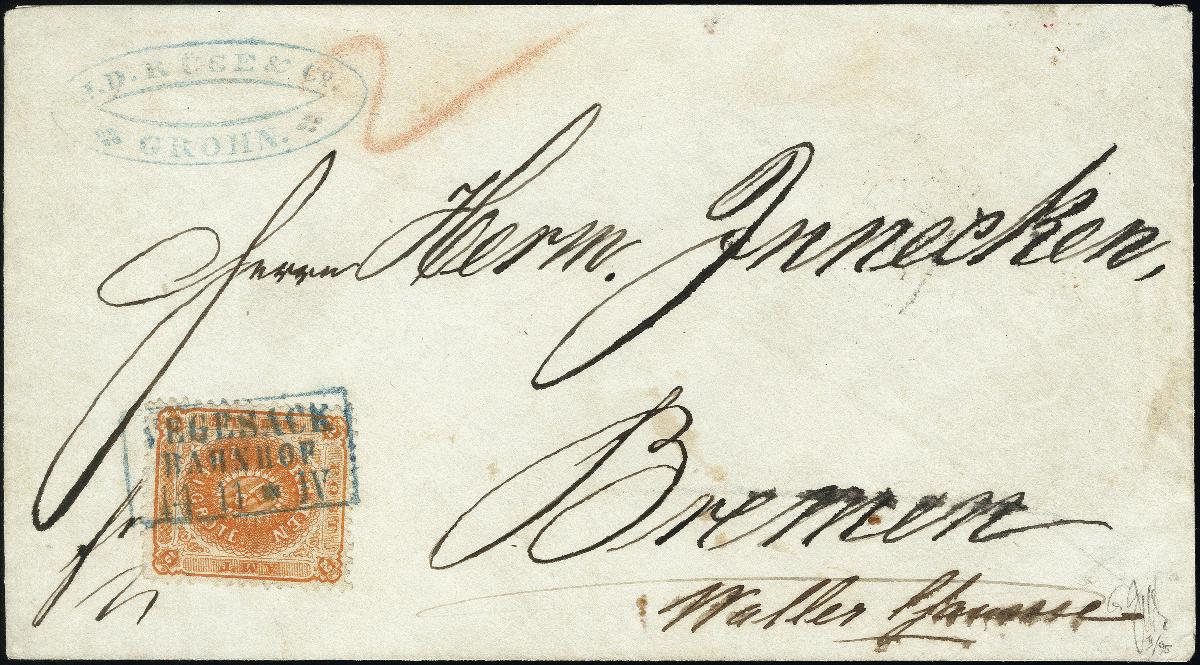 J.D. RÜGE & Co.
GROHN.
2
Herrn Herm. Innecken,
fr
VEGESACK
BAHNHOF
11 11 * IV
Bremen
Waller Chaussee